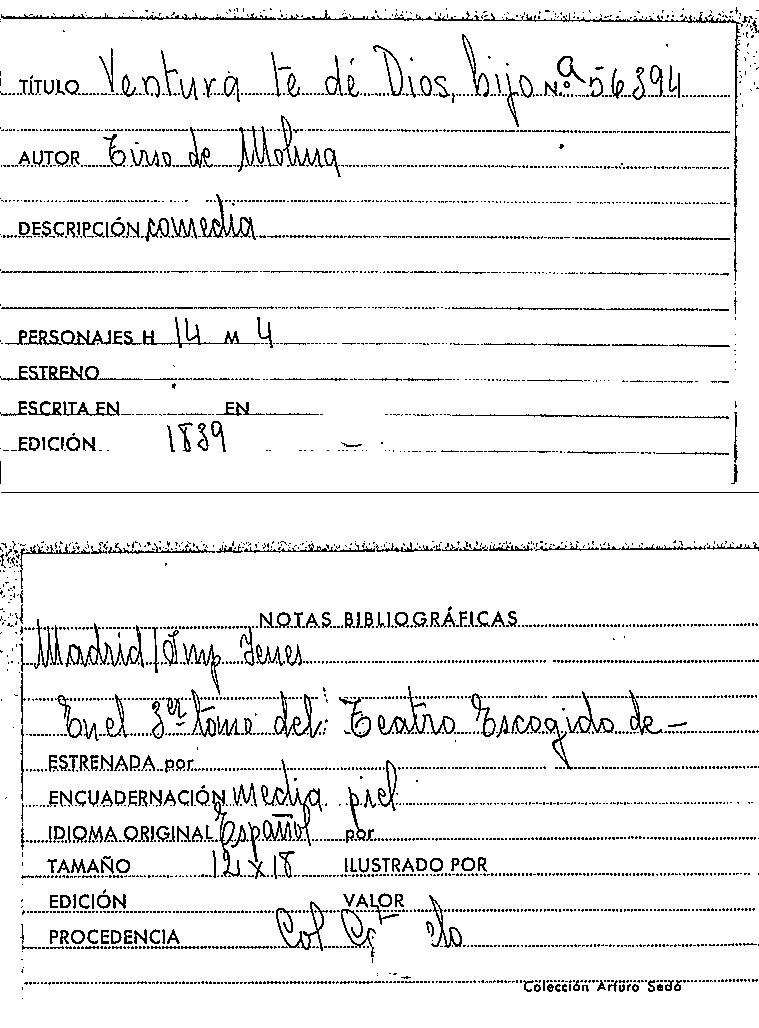 TÍTULO Ventura te dé Dios, hijo N.º a 56394
AUTOR Tirso de Molina
DESCRIPCIÓN comedia
PERSONAJES H 14 M 4
ESTRENO
ESCRITA EN EN
EDICIÓN 1839
NOTAS BIBLIOGRÁFICAS
Madrid/Imp Yenes
En el 3er tomo del: Teatro Escogido de -
ESTRENADA por
ENCUADERNACIÓN media piel
IDIOMA ORIGINAL Español por
TAMAÑO 12 x 18 ILUSTRADO POR
EDICIÓN VALOR
PROCEDENCIA Col
Colección Arturo Sedó